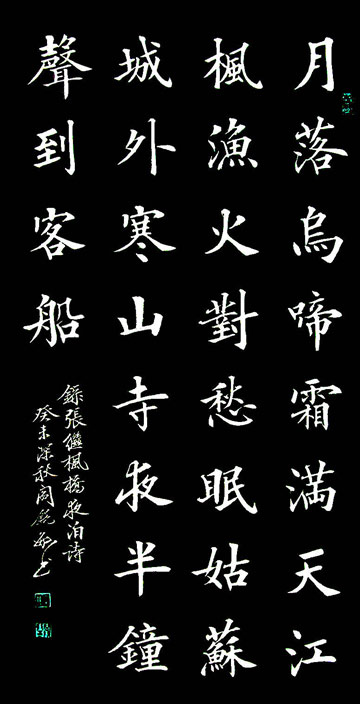 月落烏啼霜滿天江
楓漁火對愁眠姑蘇
城外寒山寺夜半鐘
聲到客船
錄張繼楓橋夜泊詩
癸未深秋